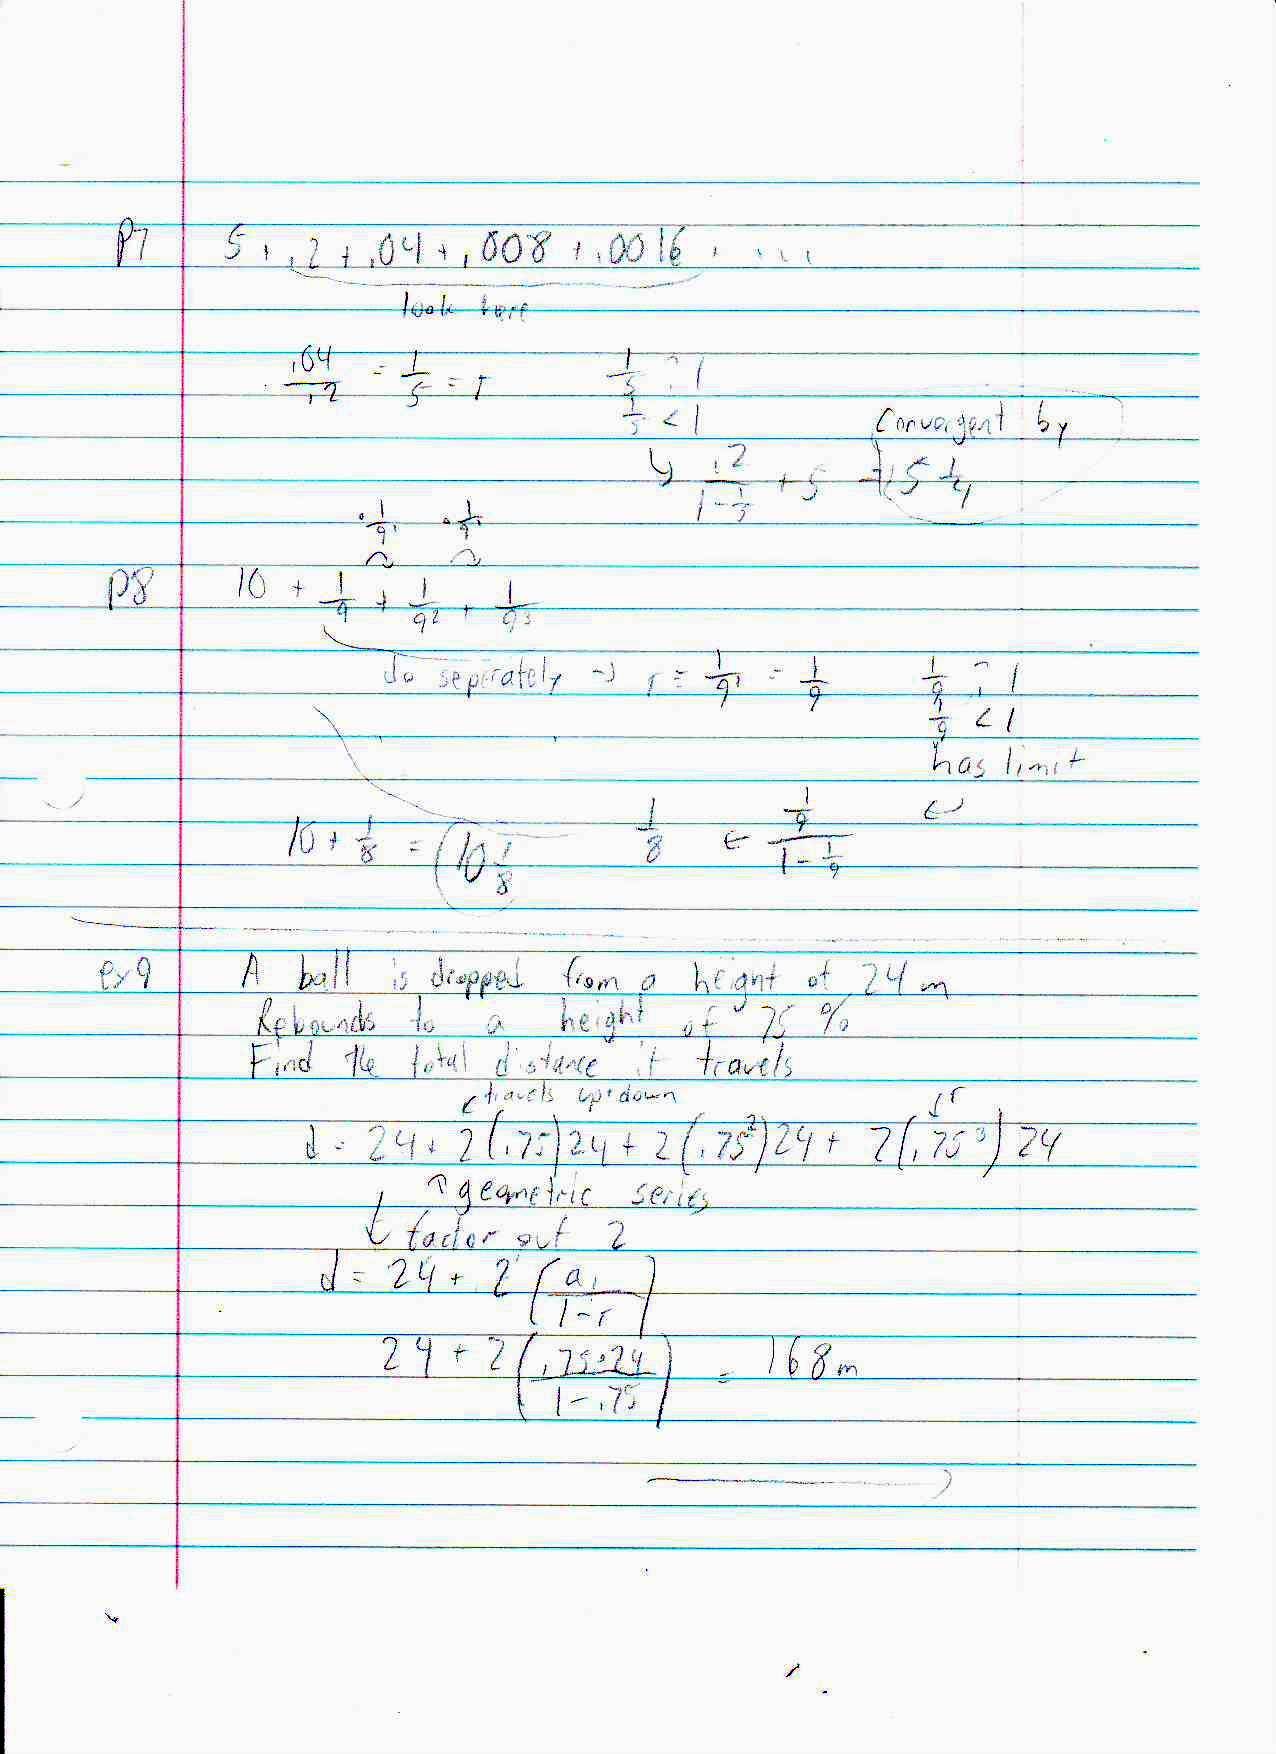 P7 5 + .2 + .04 + .008 + .0016 + ....
look here
.04/.2 = 1/5 = r 1/5 ? 1
1/5 < 1
Convergent by
↳ .2/(1-1/5) + 5 = 5 1/4
·1/9 ·1/9
P8 10 + 1/9 + 1/9² + 1/9³
do seperately → r = 1/9¹ = 1/9 1/9 ? 1
1/9 < 1
has limit
10 + 1/8 = 10 1/8 1/8 ← (1/9)/(1-1/9) ↩
ex9 A ball is dropped from a height of 24 m
Rebounds to a height of 75 %
Find the total distance it travels
travels up+down ↓r
d = 24 + 2(.75)24 + 2(.75²)24 + 2(.75³)24
↑ geometric series
↓ factor out 2
d = 24 + 2(a₁/(1-r))
24 + 2(.75·24/(1-.75)) = 168 m